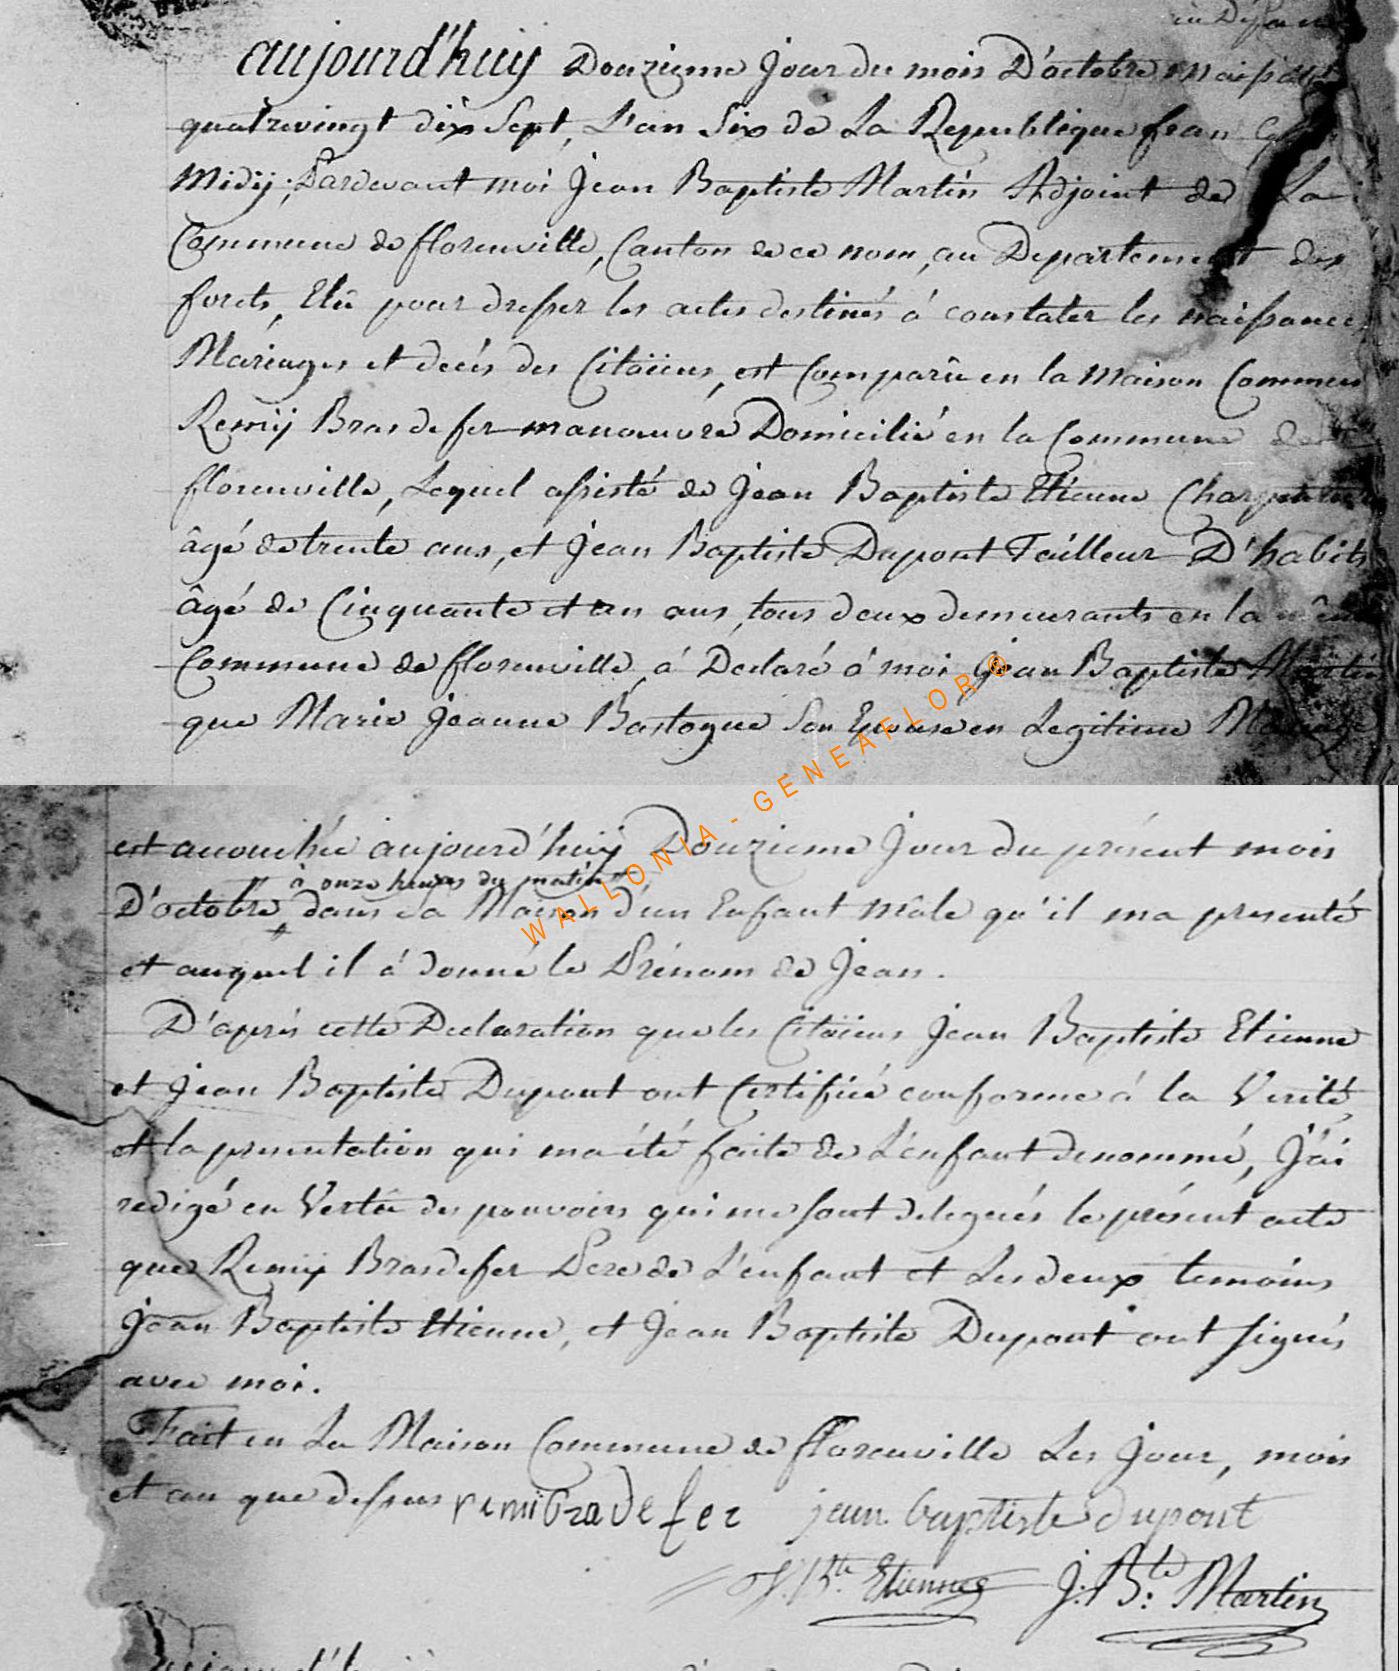 aujourd'huy Douzieme Jour du mois D'octobre
quatrevingt dix Sept, L'an Six de La Republique fran
Midÿ; Pardevant moi Jean Baptiste Martin Adjoint de La
Commune de florenville, Canton de ce nom, au Departement des
forets, Elû pour dresser les actes destinés á constater les naissances
Mariages et decés des Citoïens, est Comparû en la Maison Commun
Remÿ Brasdefer manoeuvre Domicilié en la Commune de
florenville, Lequel assisté de Jean Baptiste Etienne Charpentier
âgé de trente ans, et Jean Baptiste Dupont Tailleur D'habits
âgé de Cinquante et un ans, tous deux demeurants en la même
Commune de florenville, á Declaré á moi Jean Baptiste Martin
que Marie Jeanne Bastogne Son Epouse en Legitime Mariage
est accouchée aujourd'huÿ Douzieme Jour du présent mois
à onze heures du matin
D'octobre, dans Sa Maison d'un Enfant mâle qu'il ma presenté
et auquel il á donné le Prénom de Jean.
D'aprés cette Declaration que les Citoïens Jean Baptiste Etienne
et Jean Baptiste Dupont ont Certifié conforme á la Verité,
et la presentation qui ma été faite de L'enfant denommé, J'ái
redigé en Vertû des pouvoirs qui me sont delegués le présent acte
que Remÿ Brasdefer Pere de L'enfant et Les deux temoins
Jean Baptiste Etienne, et Jean Baptiste Dupont ont signés
avec moi.
Fait en La Maison Commune de florenville Les Jour, mois
et an que dessus remi bradefer jean baptiste dupont
J. Bte. Etienne J: Bte: Martin
WALLONIA - GENEAFLOR ©